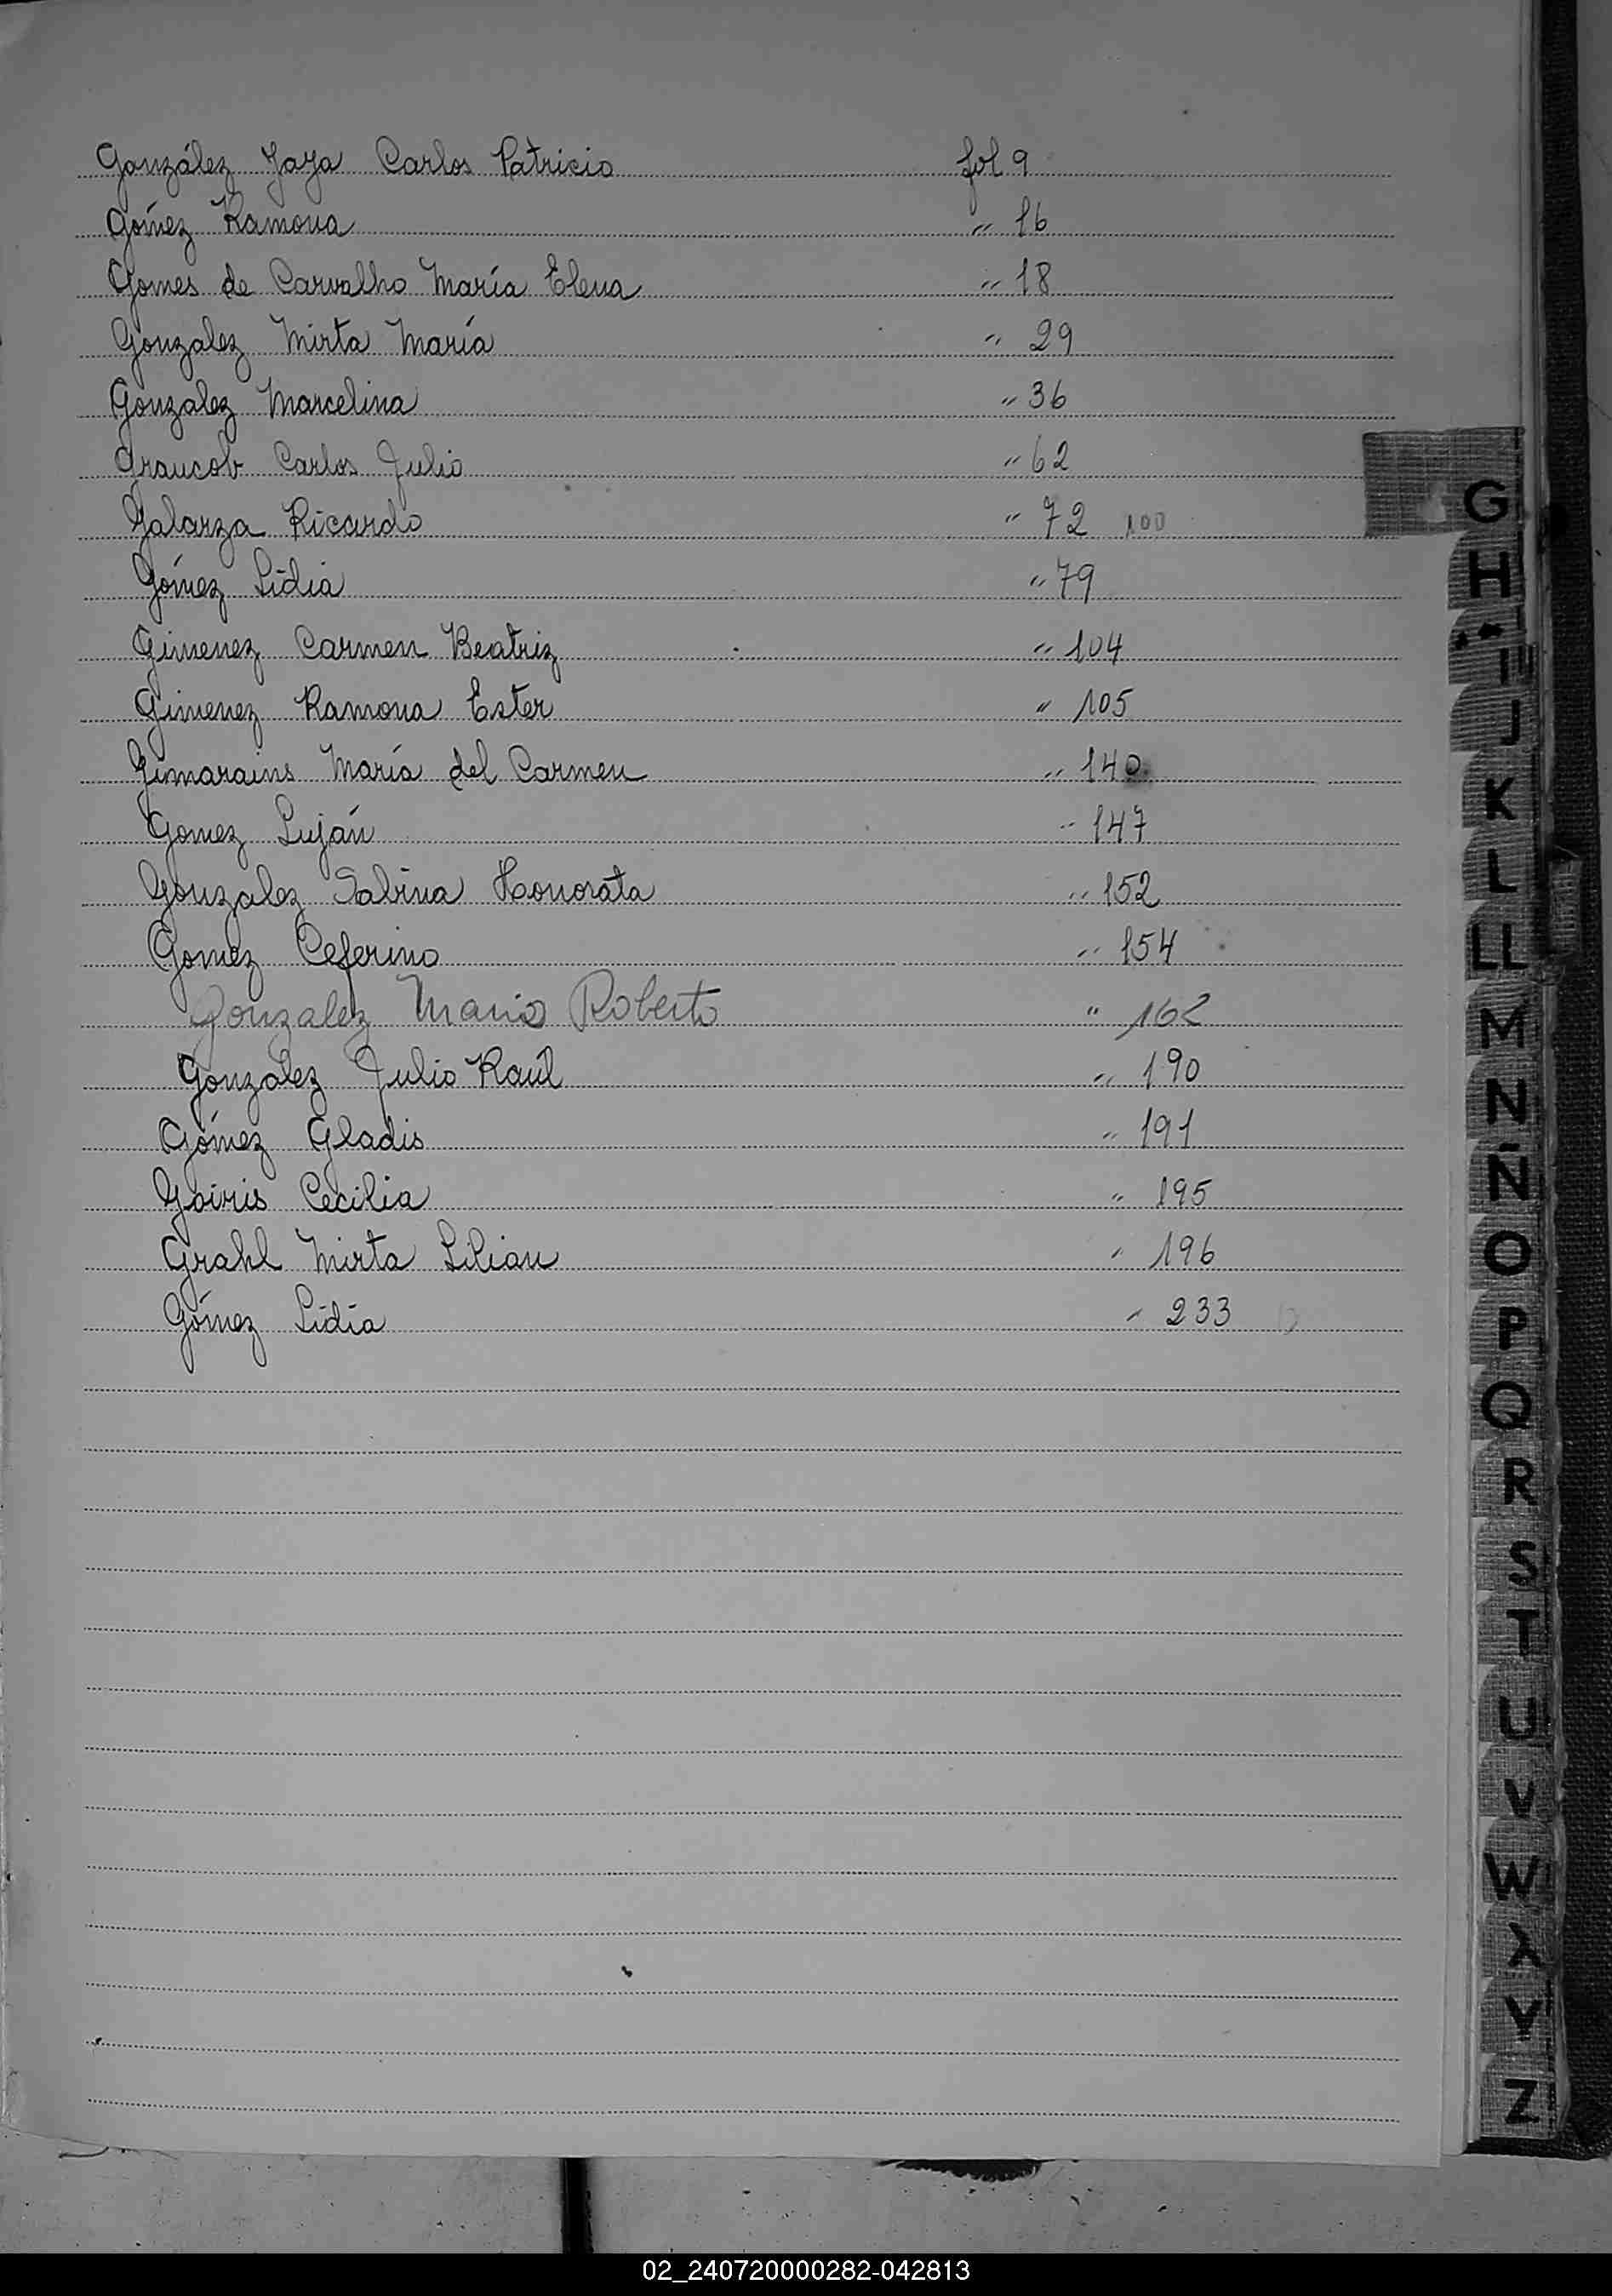 González Jaya Carlos Patricio fol 9
Gómez Ramona " 16
Gomes de Carvalho María Elena " 18
Gonzalez Mirta María " 29
Gonzalez Marcelina " 36
Graucob Carlos Julio " 62
Galarza Ricardo " 72 100
Gómez Lidia " 79
Gimenez Carmen Beatriz " 104
Gimenez Ramona Ester " 105
Gimarains María del Carmen " 140
Gomez Luján " 147
Gonzalez Sabina Honorata " 152
Gomez Ceferino " 154
Gonzalez Mario Roberto " 162
Gonzalez Julio Raúl " 190
Gómez Gladis " 191
Goiris Cecilia " 195
Grahl Mirta Lilian " 196
Gómez Lidia " 233
G
H
I
J
K
L
LL
M
N
Ñ
O
P
Q
R
S
T
U
V
W
X
Y
Z
02_240720000282-042813